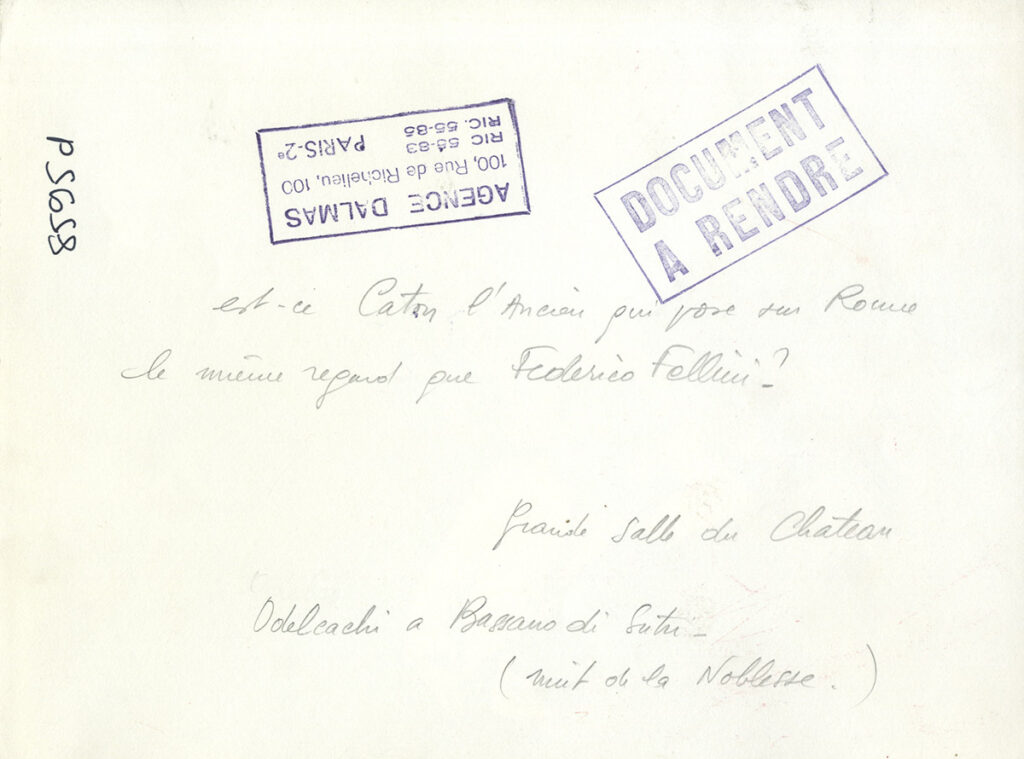 P5G658
AGENCE DALMAS
100, Rue de Richelieu, 100
RIC 55-83 PARIS-2e
RIC. 55-85
DOCUMENT
A RENDRE
est-ce Caton l'Ancien qui pose sur Rome
le même regard que Federico Fellini?
Grande Salle du Chateau
Odelcachi a Bassano di Sutri
(nuit de la Noblesse.)